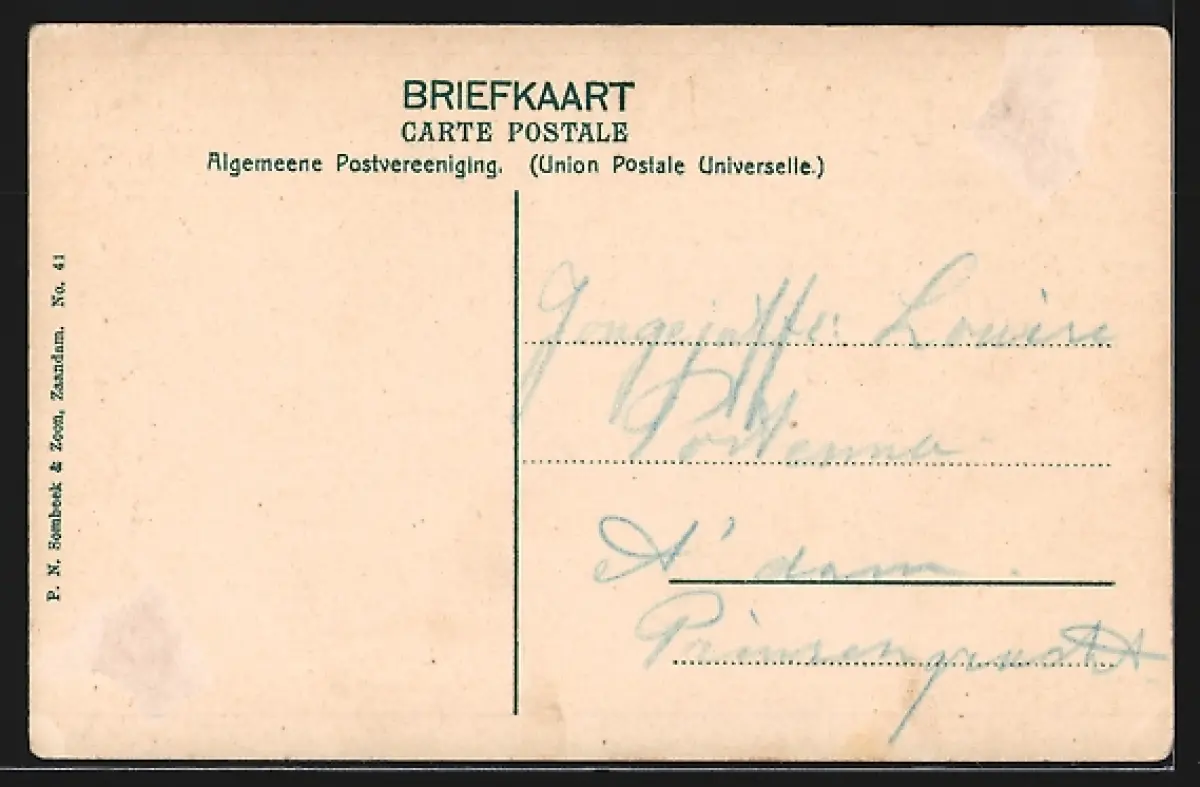 BRIEFKAART
CARTE POSTALE
Algemeene Postvereeniging. (Union Postale Universelle.)
P. N. Sombeek & Zoon, Zaandam. No. 41
Louise
A'dam.
Prinsengracht